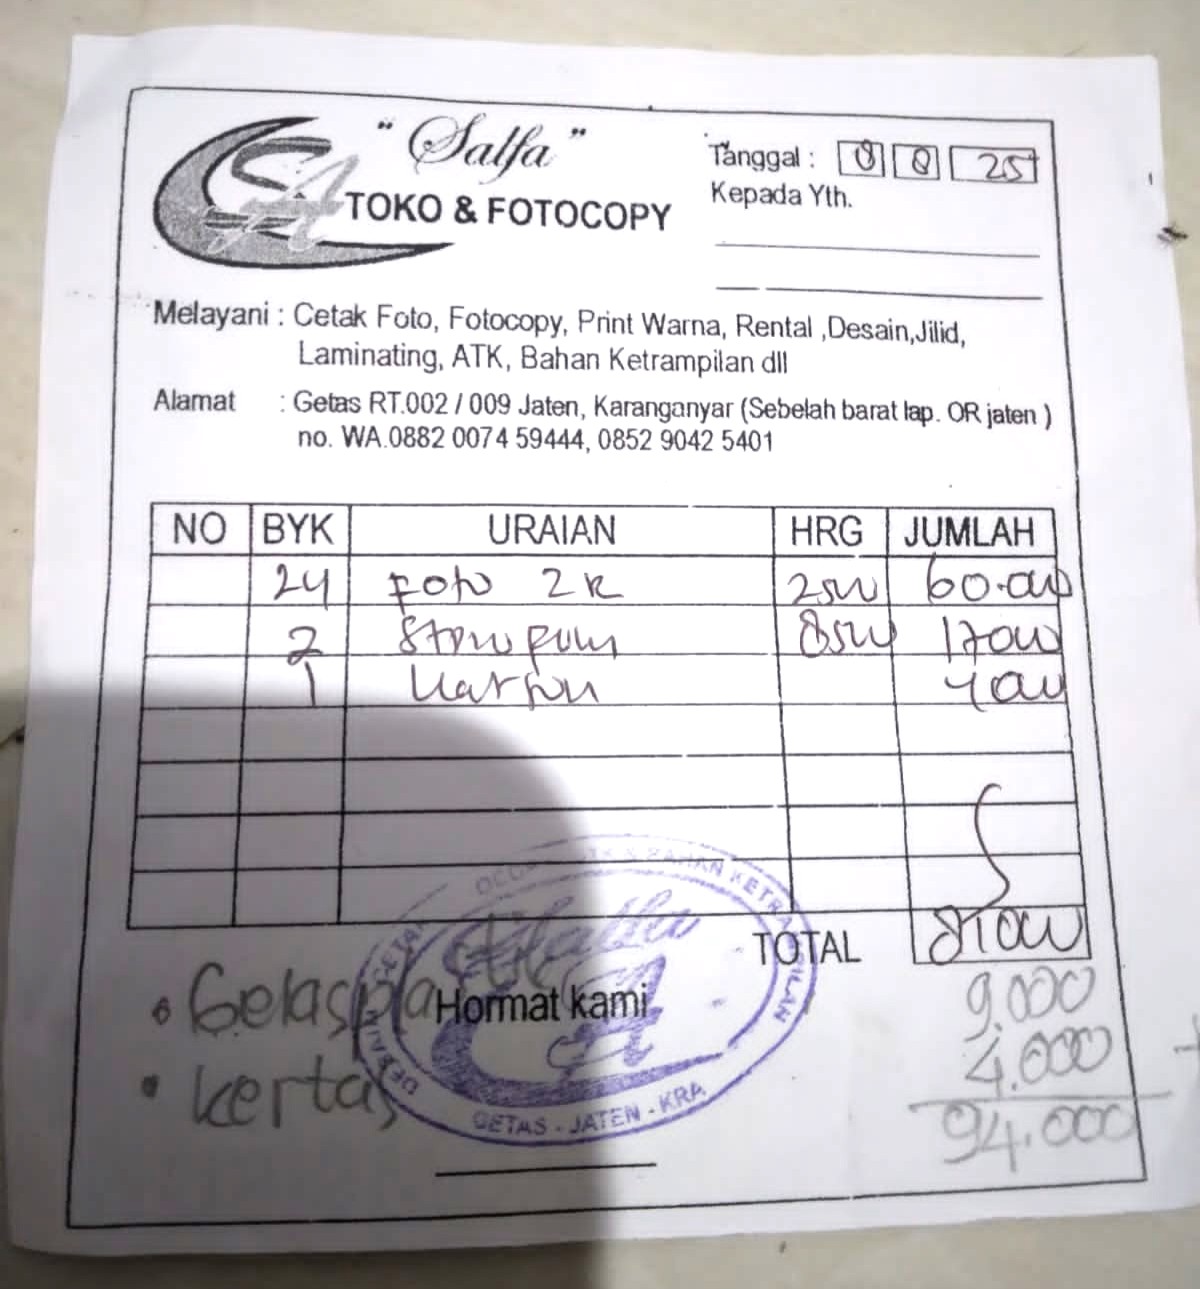 "Salfa"
TOKO & FOTOCOPY
Tanggal : 8 8 25
Kepada Yth.
Melayani : Cetak Foto, Fotocopy, Print Warna, Rental ,Desain,Jilid,
Laminating, ATK, Bahan Ketrampilan dll
Alamat : Getas RT.002 / 009 Jaten, Karanganyar (Sebelah barat lap. OR jaten )
no. WA.0882 0074 59444, 0852 9042 5401
NO BYK URAIAN HRG JUMLAH
24 Foto 2R 2500 60.000
2 8500 17000
1 4000
TOTAL 81000
• Gelas 9.000
Hormat kami
• Kertas 4.000 +
94.000
& BAHAN KETRAMPILAN
GETAS - JATEN - KRA